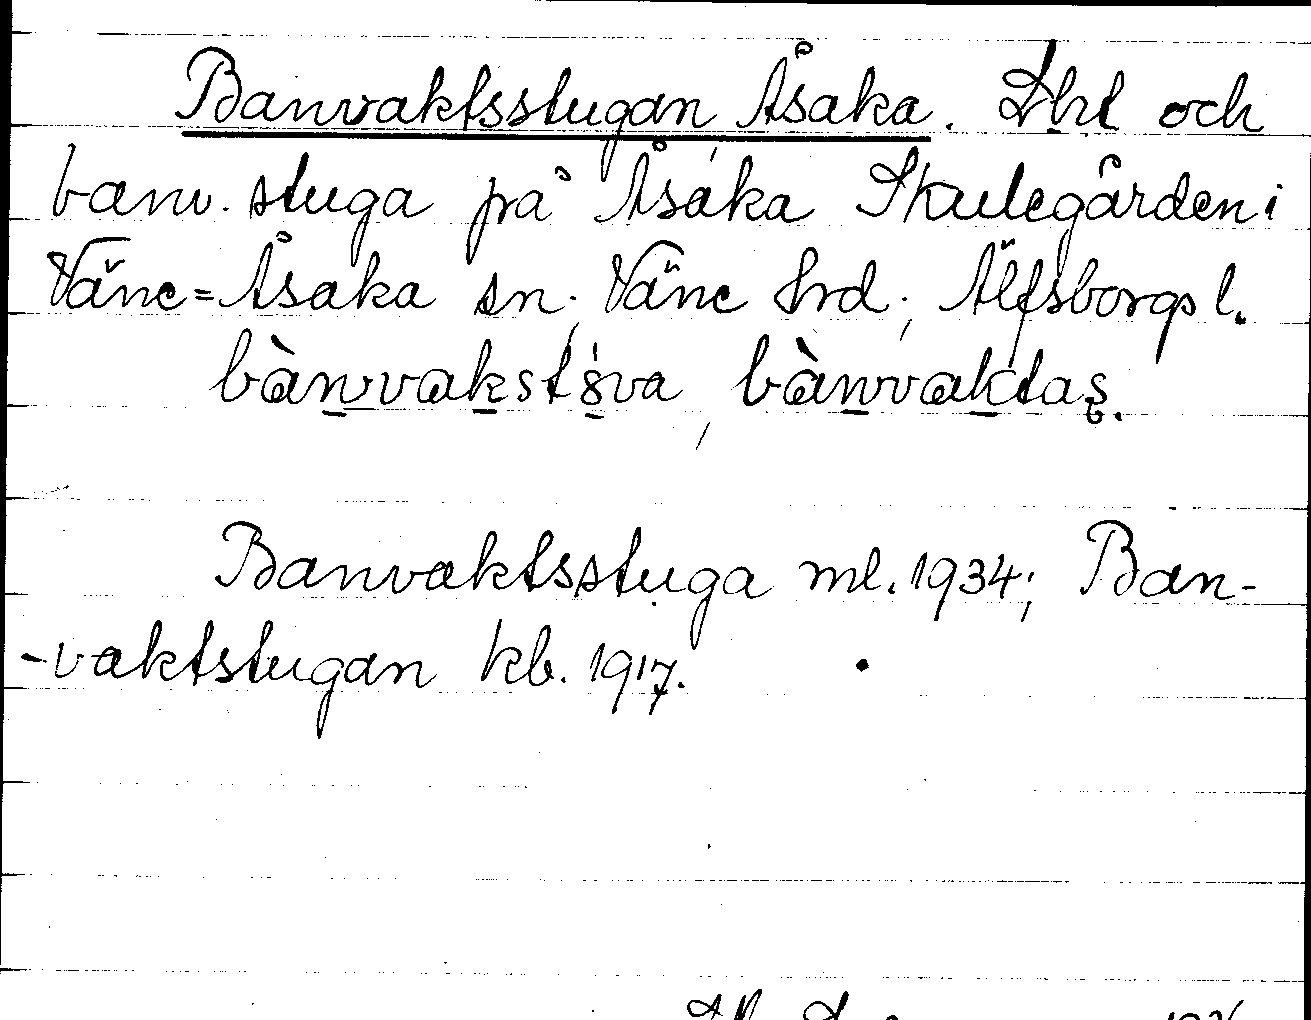 Banvaktsstugan, Åsaka. Lht och
banv. stuga på Åsaka Skulegården i
Väne=Åsaka sn, Väne hrd, Älfsborgs l.
bànvakstöva, bànvaktas.
Banvaktsstuga ml. 1934; Ban-
-vaktstugan kb. 1917.